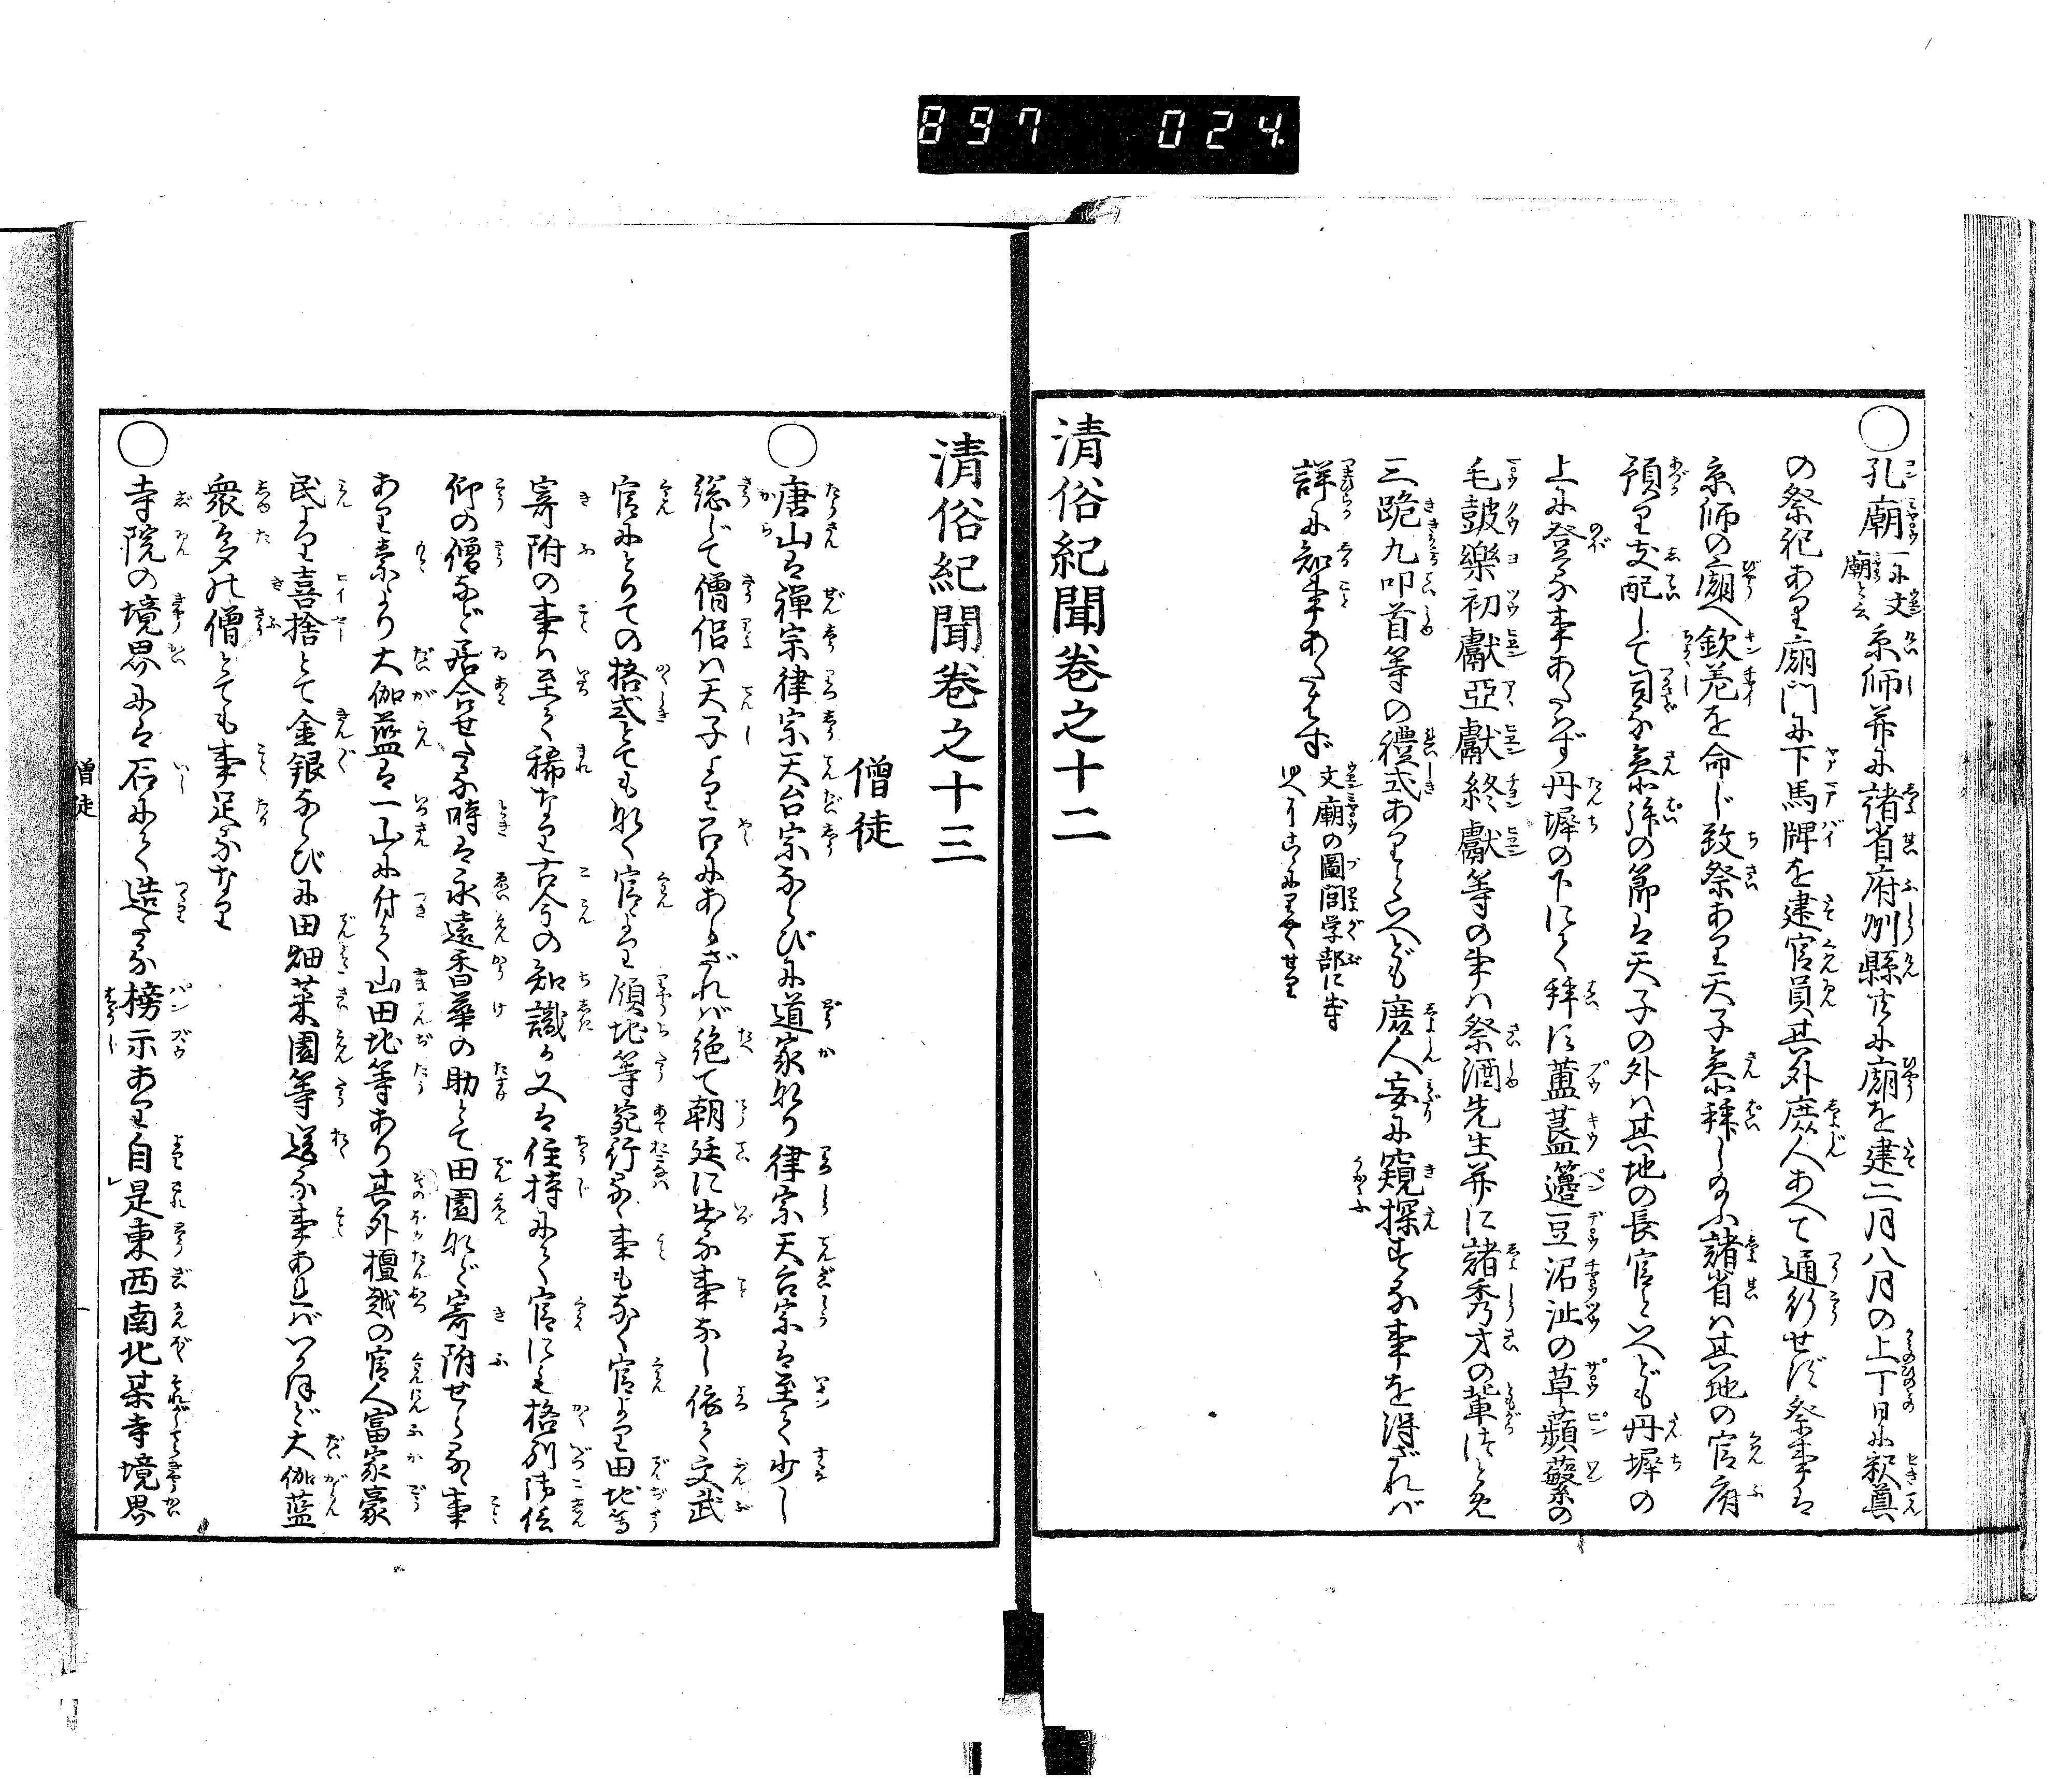 897 024
○孔廟一に文廟と云京師并に諸省府州縣共に廟を建二月八月の上丁日に釈奠
の祭祀あり廟門に下馬牌を建官員其外庶人あへて通行せず祭事は
京師の廟へ欽差を命じ致祭あり天子参拝し給ふ諸省ハ其地の官府
預り支配して司る参拝の節は天子の外ハ其地の長官といへども丹墀の
上に登る事あたはず丹墀の下にて拝す簠簋籩豆沼沚の草蘋蘩の
毛鼓樂初獻亞獻終獻等の事ハ祭酒先生并に諸秀才の輩つとめ
三跪九叩首等の禮式ありといへども庶人妄に窺探する事を得ざれバ
詳に知事あたはず文廟の圖閭学部に出す
清俗紀聞巻之十二
清俗紀聞巻之十三
僧徒
○唐山は禪宗律宗天台宗ならびに道家なり律宗天台宗は至て少し
総じて僧侶ハ天子より召にあらざれバ絶て朝廷に出る事なし依て文武
官にとりての格式とても なく官より領地等宛行るゝ事もなく官より田地等
寄附の事ハ至て稀なり古今の知識又は住持にて官にも格別御信
仰の僧など居合せたる時は永遠香華の助として田園など寄附せらるゝ事
あり素より大伽藍は一山に付て山田地等あり其外檀越の官人富家豪
民より喜捨とて金銀ならびに田畑菜園等送る事あれバいかほど大伽藍
衆多の僧とても事足るなり
○寺院の境界には石にて造たる榜示あり自是東西南北某寺境界
僧徒 一